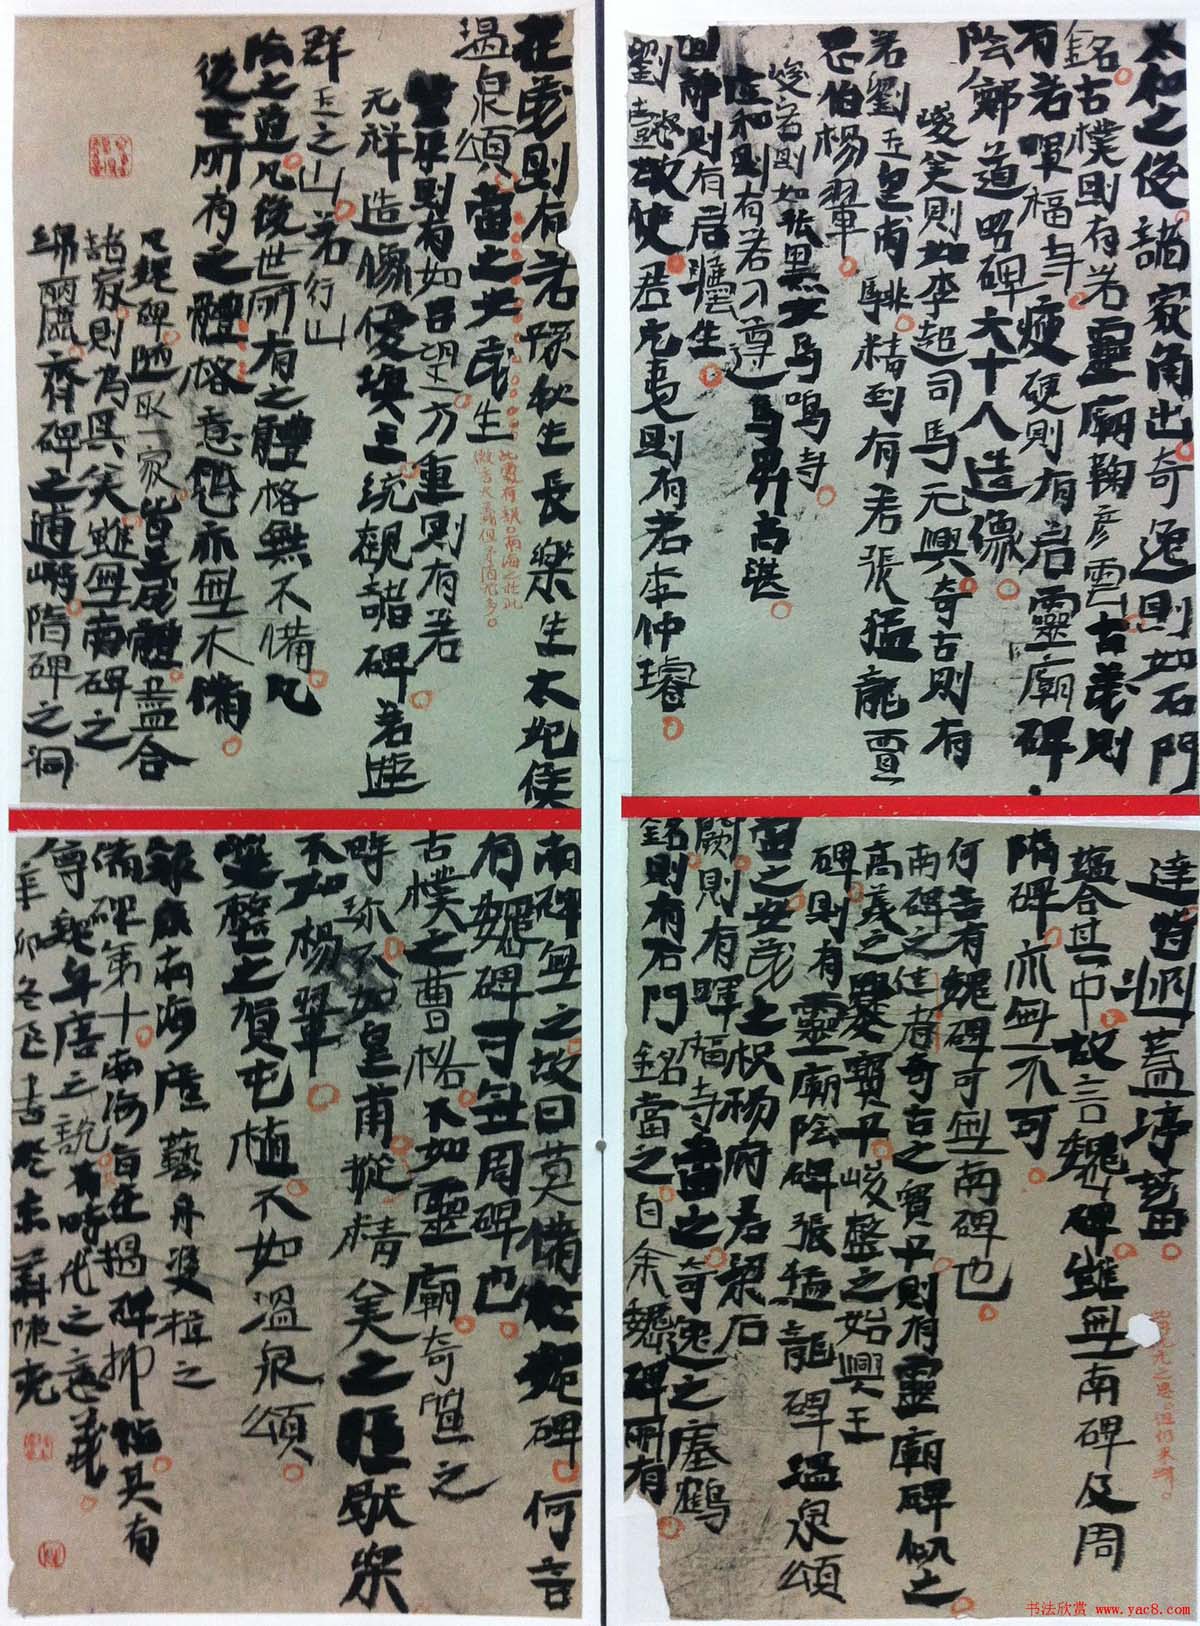 太和之後諸家角出奇逸則如石門
銘古樸則有若靈廟鞠彥雲古茂則
有若暉福寺瘦硬則有若靈廟碑
陰鄭道昭碑六十人造像
峻美則如李超司馬元興奇古則有
若劉玉皇甫驎精到有若張猛龍賈
思伯楊翬
峻宕則如張黑女馬鳴寺
虛和則有若刁遵司馬昇高湛
圓靜則有若生
劉懿敬使君亢夷則有若李仲璿
莊茂則有若孫秋生長樂王太妃侯
溫泉頌當之茂生
豐厚則有如呂望方重則有若
元祥造像優填王統觀諸碑若遊
群玉之山若行山
陰之道凡後世所有之體格無不備凡
後世所有之體格意態亦無不備
凡魏碑隨取一家皆足成體盡合
諸家則為具美雖無南碑之
綿麗齊碑之遒峭隋碑之洞
達皆涵蓋渟蓄
蘊合其中故言魏碑雖無南碑及周
隋碑亦無不可
何言有魏碑可無南碑也
南碑之佳者奇古之寶子則有靈廟碑似之
高美之爨寶子峻整之始興王
碑則有靈廟陰碑張猛龍碑溫泉頌
當之安茂之枳楊府君梁石
闕則有暉福寺當之奇逸之瘞鶴
銘則有石門銘當之自余魏碑所有
南碑無之故曰莫備於魏碑何言
有魏碑可無周碑也
古樸之曹恪不如靈廟奇質之
時珍不如皇甫驎精美之匡喆刻
不如楊翬
雙璧之賀屯植不如溫泉頌
錄康南海廣藝舟雙楫之
備碑第十南海旨在揚碑抑帖其有
尊魏卑唐之說有時代之意義
辛卯冬書於東陳
书法欣赏 www.yac8.com